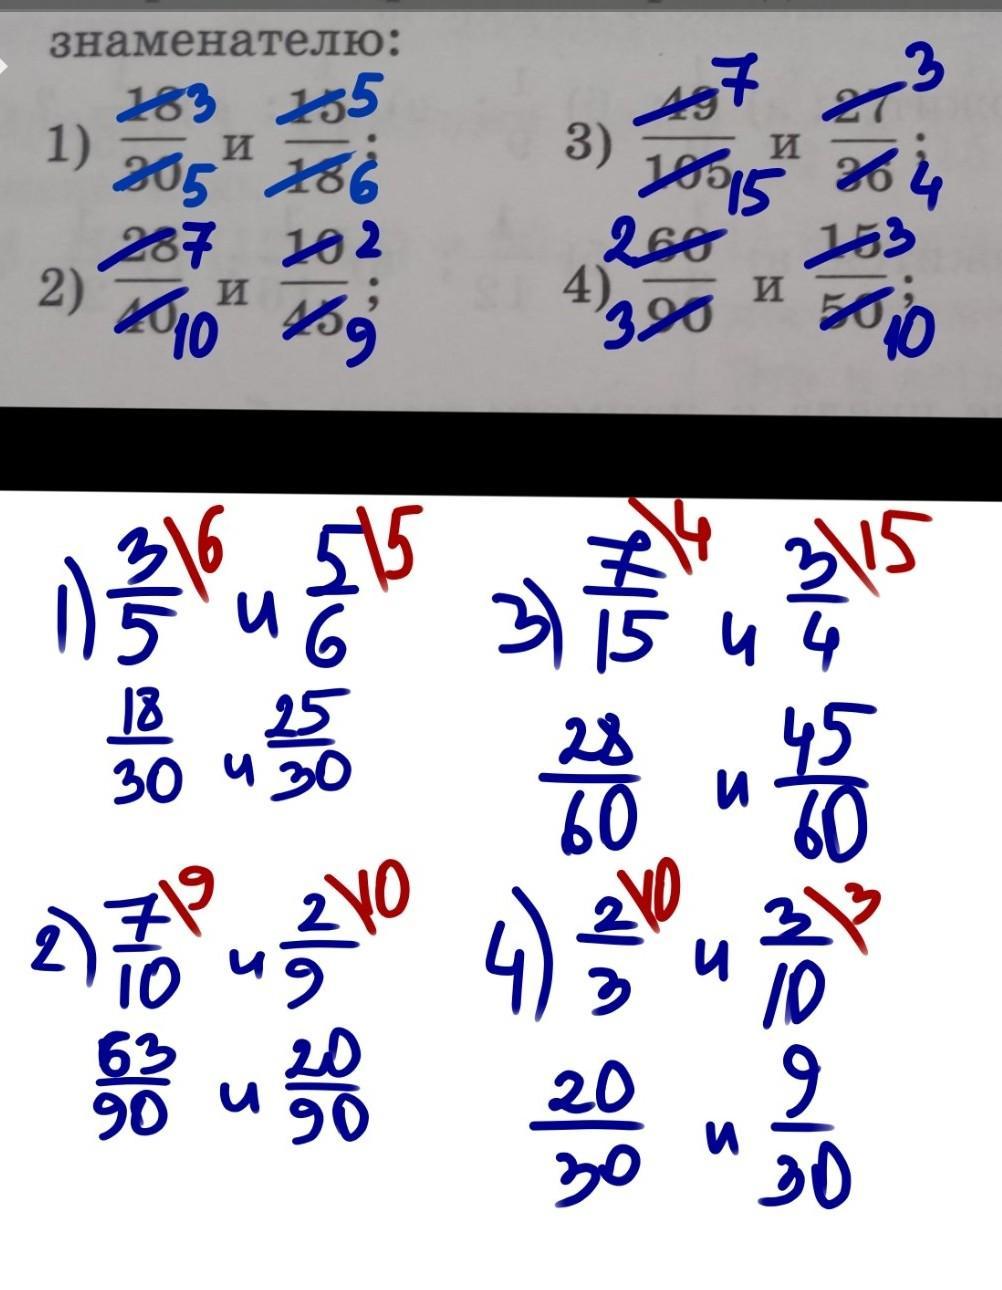 знаменателю:
1) 18/30 3/5 и 15/18 5/6 ;
3) 49/105 7/15 и 27/36 3/4 ;
2) 28/40 7/10 и 10/45 2/9 ;
4) 60/90 2/3 и 15/50 3/10 ;
1) 3/5 \6 и 5/6 \5
18/30 и 25/30
3) 7/15 \4 и 3/4 \15
28/60 и 45/60
2) 7/10 \9 и 2/9 \10
63/90 и 20/90
4) 2/3 \10 и 3/10 \3
20/30 и 9/30